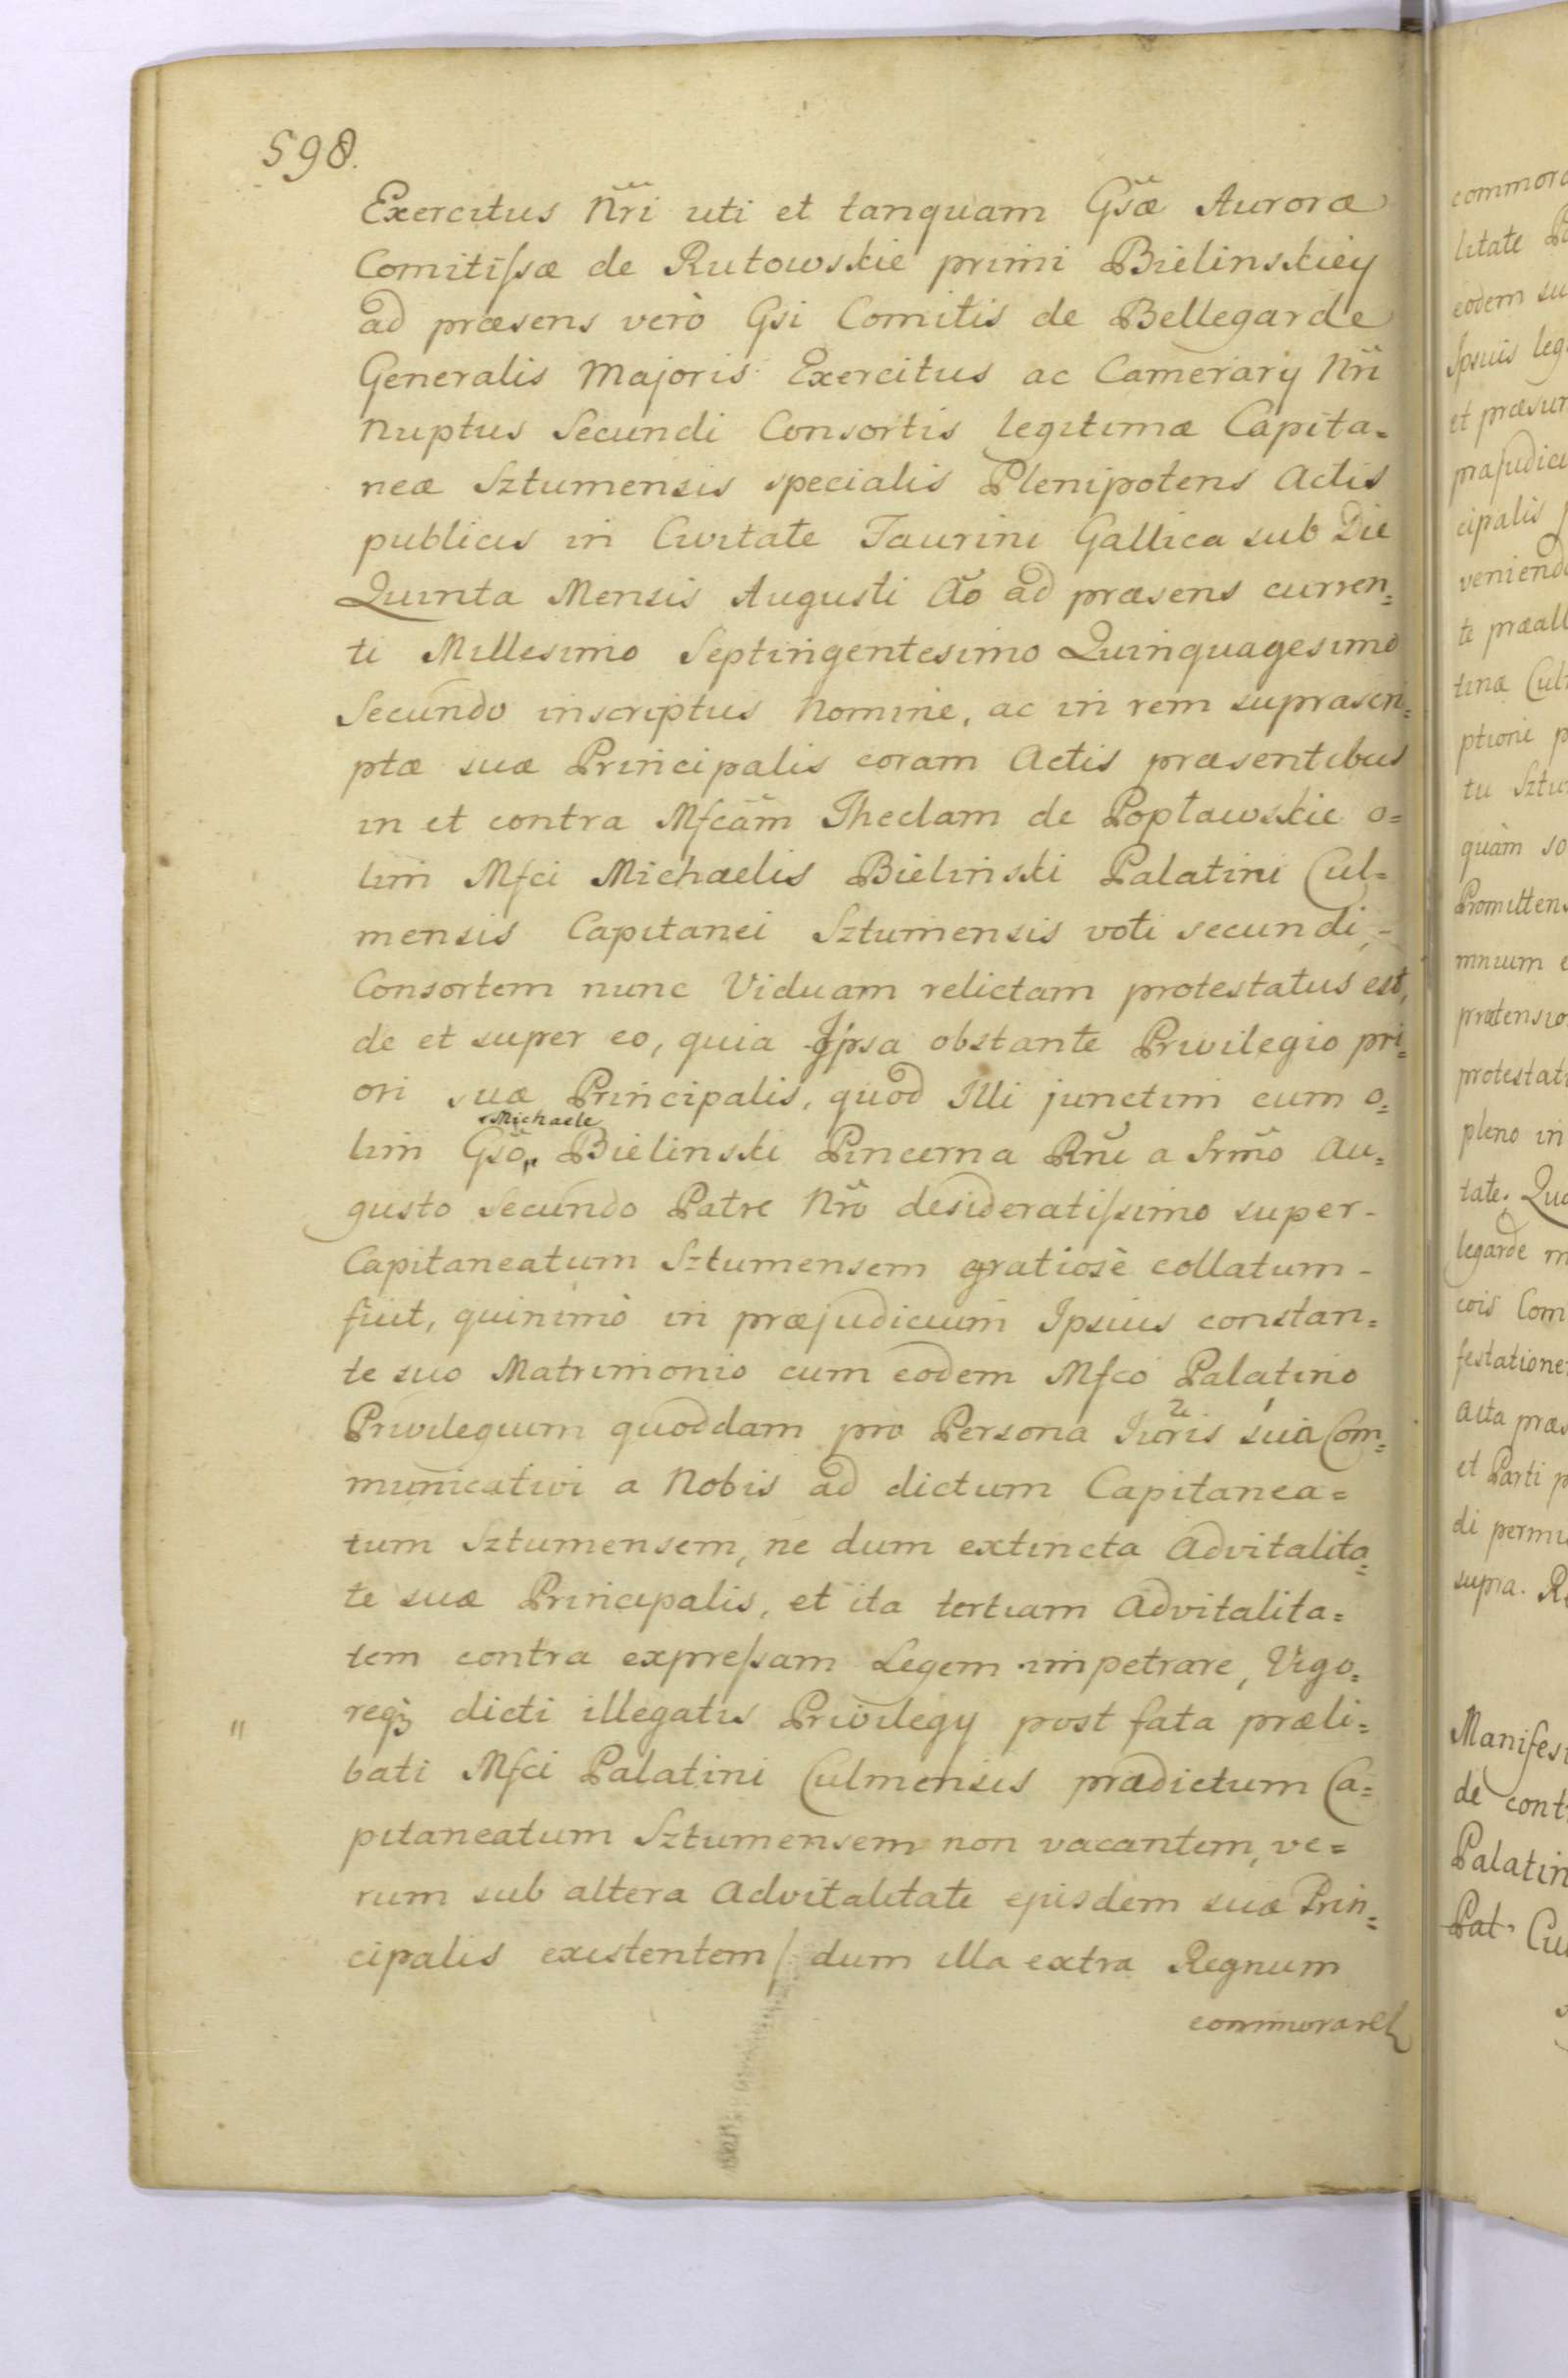 598.
Exercitus Nr̃i uti et tanquam Gs̃æ Auroræ
Comitissæ de Rutowskie primi Bielinskiey
ad præsens verò Gsi Comitis de Bellegarde
Generalis Majoris Exercitus ac Camerarÿ Nr̃i
Nuptus Secundi Consortis legitimæ Capita=
neæ Sztumensis specialis Plenipotens Actis
publicis in Civitate Taurini Gallica sub Die
Quinta Mensis Augusti Ão ad præsens curren=
ti Millesimo Septingentesimo Quinquagesimo
Secundo inscriptus Nomine, ac in rem suprascri=
ptæ suæ Principalis coram Actis præsentibus
in et contra Mfcam̃ Theclam de Popławskie o=
lim Mfci Michaelis Bielinski Palatini Cul=
mensis Capitanei Sztumensis voti secundi,-
Consortem nunc Viduam relictam protestatus est,
de et super eo, quia Ipsa obstante Privilegio pri=
ori suæ Principalis, quod Illi junctim cum o=
Michaele
lim Gsõ„ Bielinski Pincerna Rñi a Srm̃o Au=
gusto Secundo Patre Nr̃o desideratissimo super-
Capitaneatum Sztumensem gratiosè collatum-
fuit, quinimò in præjudicium Ipsius constan=
te suo Matrimonio cum eodem Mfco Palatino
2 1
Privilegium quoddam pro Persona Iuris sua Com=
municativi a Nobis ad dictum Capitanea=
tum Sztumensem, ne dum extincta Advitalita=
te suæ Principalis, et ita tertiam Advitalita=
tem contra expressam Legem impetrare, Vigo=
reqз dicti illegatis Privilegÿ post fata præli=
"
bati Mfci Palatini Culmensis prædictum Ca=
pitaneatum Sztumensem non vacantem, ve=
rum sub altera Advitalitate ejusdem suæ Prin=
cipalis existentem/ dum illa extra Regnum
commoraret
commora
litate
eodem su
Ipsius leg
et præsu
præjudici
cipalis
veniend
te præall
tinæ Cul
ptioni p
tu Sztu
quàm so
Promittens
mnium e
prætensio
protestat
pleno in
tate. Quo
legarde m
cois Com
festatione
Acta præs
et Parti p
di permi
supra. R
Manifes
de cont
Palatin
Pat. Cu